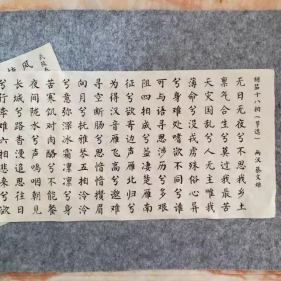 胡笳十八拍（节选） 两汉 蔡文姬
无日无夜兮不思我乡土
禀气含生兮莫过我最苦
天灾国乱兮人无主唯我
薄命兮没戎虏殊俗心异
兮身难处嗜欲不同兮谁
可与语寻思涉历兮多艰
阻四拍成兮益凄楚雁南
征兮欲寄边声雁北归兮
为得汉音雁飞高兮邈难
寻空断肠兮思愔愔攒眉
向月兮抚雅琴五拍泠泠
兮意弥深冰霜凛凛兮身
苦寒饥对肉酪兮不能餐
夜间陇水兮声呜咽朝见
长城兮路杳漫追思往日
兮行李难六拍悲来兮欲
风